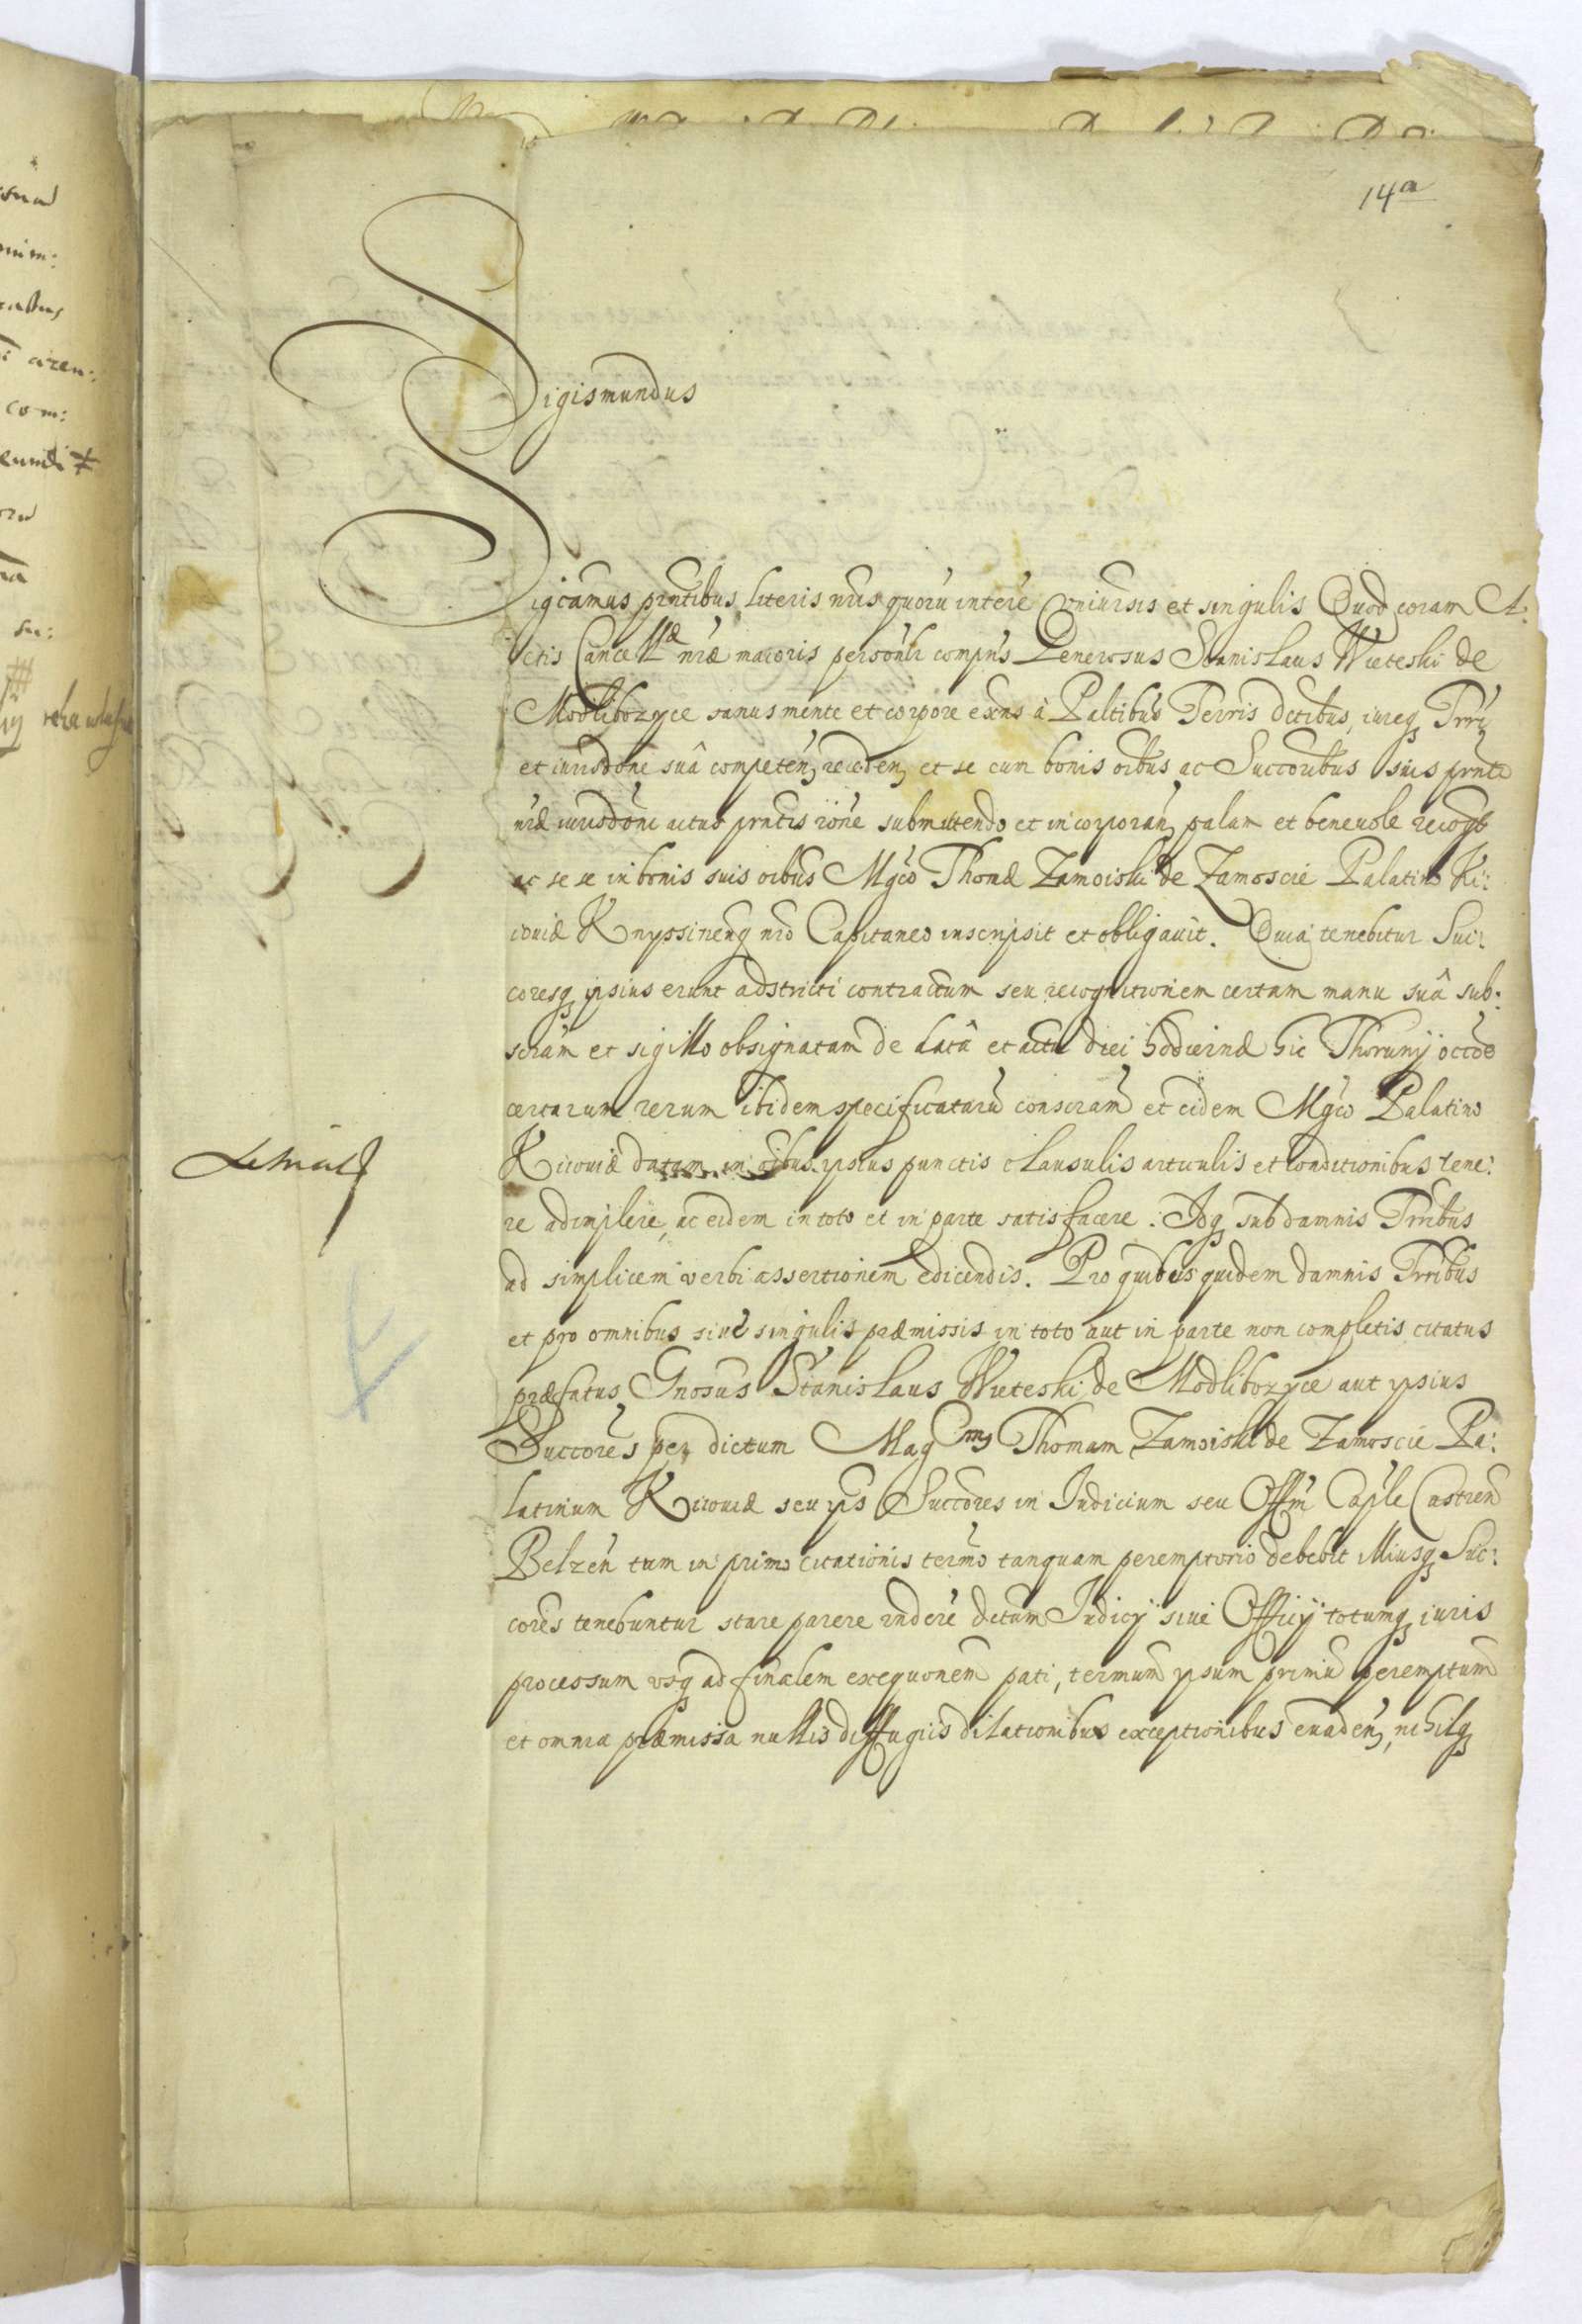 14a
Sigismundus
Sigcamus pńtibus literis nris quorũ interẽ Vniuersis et singulis Quod coram A:
ctis Cancellæ nræ maioris personlr compns Generosus Stanislaus Wieteski de
Modlibozyce sanus mente et corpore exns à Paltibus Terris dctibus, iureq Trri
et iurisdone suâ competeñ recedeñ et se cum bonis oibus ac Succoribus suis prnti
nræ iurisdoni actus prntis rone submittendo et incorporañ palam et beneuole recogt
ac sese in bonis suis oibus Mgco Thomæ Zamoiski de Zamoscie Palatino Ki:
iouiæ Knyssineñ nro Capitaneo inscripsit et obligauit. Quia tenebitur Suc:
coresq ipsius erunt adstricti contractum seu recognitionem certam manu suâ sub:
scrãm et sigillo obsignatam de datâ et actu diei hodiernæ hic Thorunij occoe
certarum rerum ibidem specificatarũ conscram et eidem Mgco Palatino
Kiiouiæ datam in oibus ipsius punctis clausulis articulis et conditionibus tene:
re adimplere, ac eidem in toto et in parte satisfacere. Idq sub damnis Trribus
ad simplicem verbi assertionem edicendis. Pro quibus quidem damnis Trribus
et pro omnibus siue singulis præmissis in toto aut in parte non completis citatus
præfatus Gnosus Stanislaus Wieteski de Modlibozyce aut ipsius
Succores per dictum Magcum Thomam Zamoiski de Zamoscie Pa:
latinum Kiiouiæ seu ips Succores in Iudicium seu Offm Caple Castren
Belzeñ tum in primo citationis termo tanquam peremptorio debebit illiusq Suc:
cores tenebuntur stare parere rndere dctum Iudicij siue Officij totumq iuris
processum vsq ad finalem exequonem pati, termum ipsum primũ peremptum
et omnia præmissa nullis diffugiis dilationibus exceptionibus euadeñ, nihilq